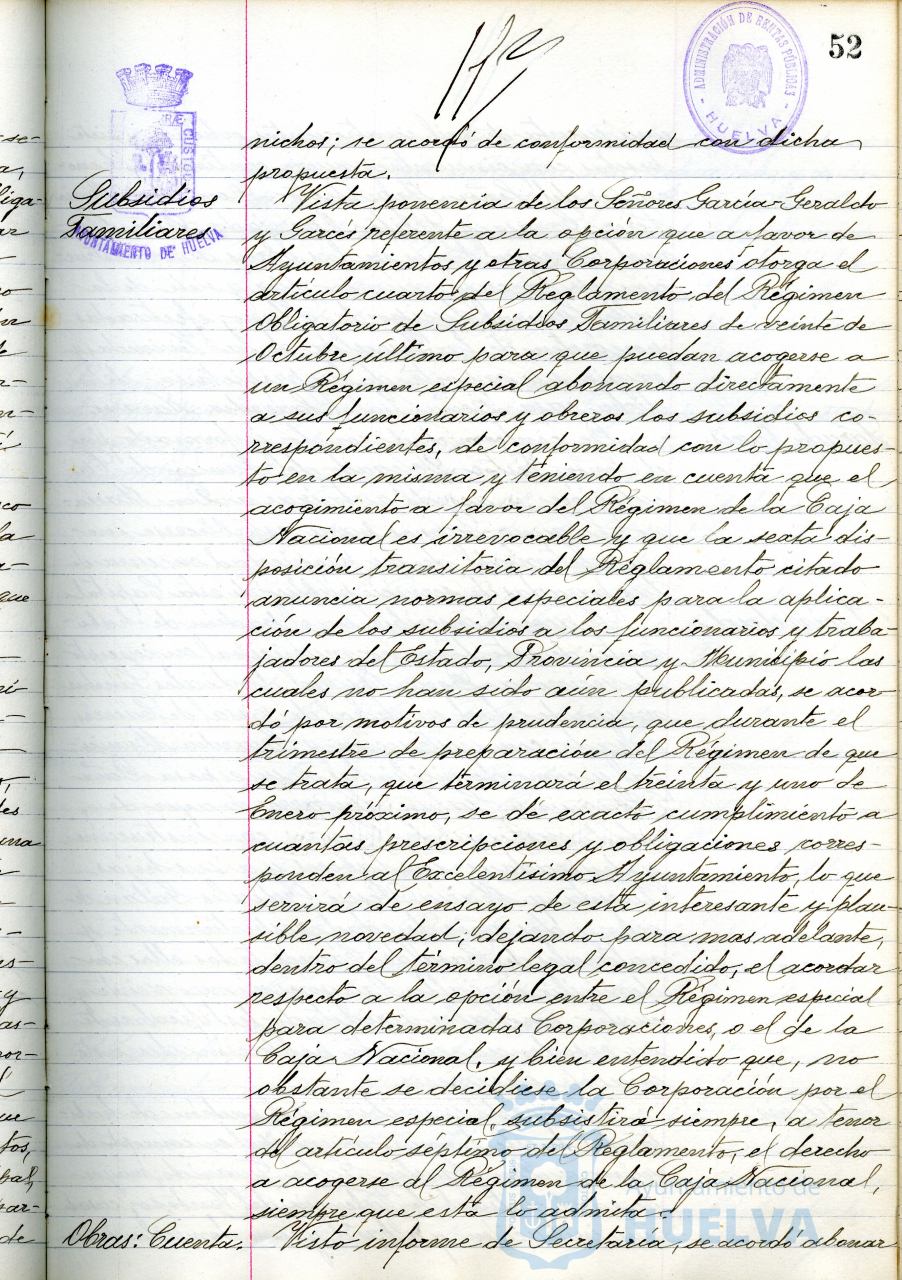 52
ADMINISTRACIÓN DE RENTAS PÚBLICAS
HUELVA
CUSTO
AYUNTAMIENTO DE HUELVA
nichos; se acordó de conformidad con dicha
propuesta.
Subsidios
Familiares
Vista ponencia de los Señores García-Geraldo
y Garcés referente a la opción que a favor de
Ayuntamientos y otras Corporaciones otorga el
artículo cuarto del Reglamento del Régimen
Obligatorio de Subsidios Familiares de veinte de
Octubre último para que puedan acogerse a
un Régimen especial abonando directamente
a sus funcionarios y obreros los subsidios co-
rrespondientes, de conformidad con lo propues-
to en la misma y teniendo en cuenta que el
acogimiento a favor del Régimen de la Caja
Nacional es irrevocable y que la sexta dis-
posición transitoria del Reglamento citado
anuncia normas especiales para la aplica-
ción de los subsidios a los funcionarios y traba-
jadores del Estado, Provincia y Municipio las
cuales no han sido aún publicadas, se acor-
dó por motivos de prudencia, que durante el
trimestre de preparación del Régimen de que
se trata, que terminará el treinta y uno de
Enero próximo, se dé exacto cumplimiento a
cuantas prescripciones y obligaciones corres-
ponden al Excelentísimo Ayuntamiento, lo que
servirá de ensayo de esta interesante y plau-
sible novedad; dejando para mas adelante,
dentro del término legal concedido, el acordar
respecto a la opción entre el Régimen especial
para determinadas Corporaciones, o el de la
Caja Nacional, y bien entendido que, no
obstante se decidiese la Corporación por el
Régimen especial, subsistirá siempre, a tenor
del artículo séptimo del Reglamento, el derecho
a acogerse al Régimen de la Caja Nacional,
siempre que esta lo admita.
Obras: Cuenta.
Visto informe de Secretaría, se acordó abonar
Ayuntamiento de
HUELVA